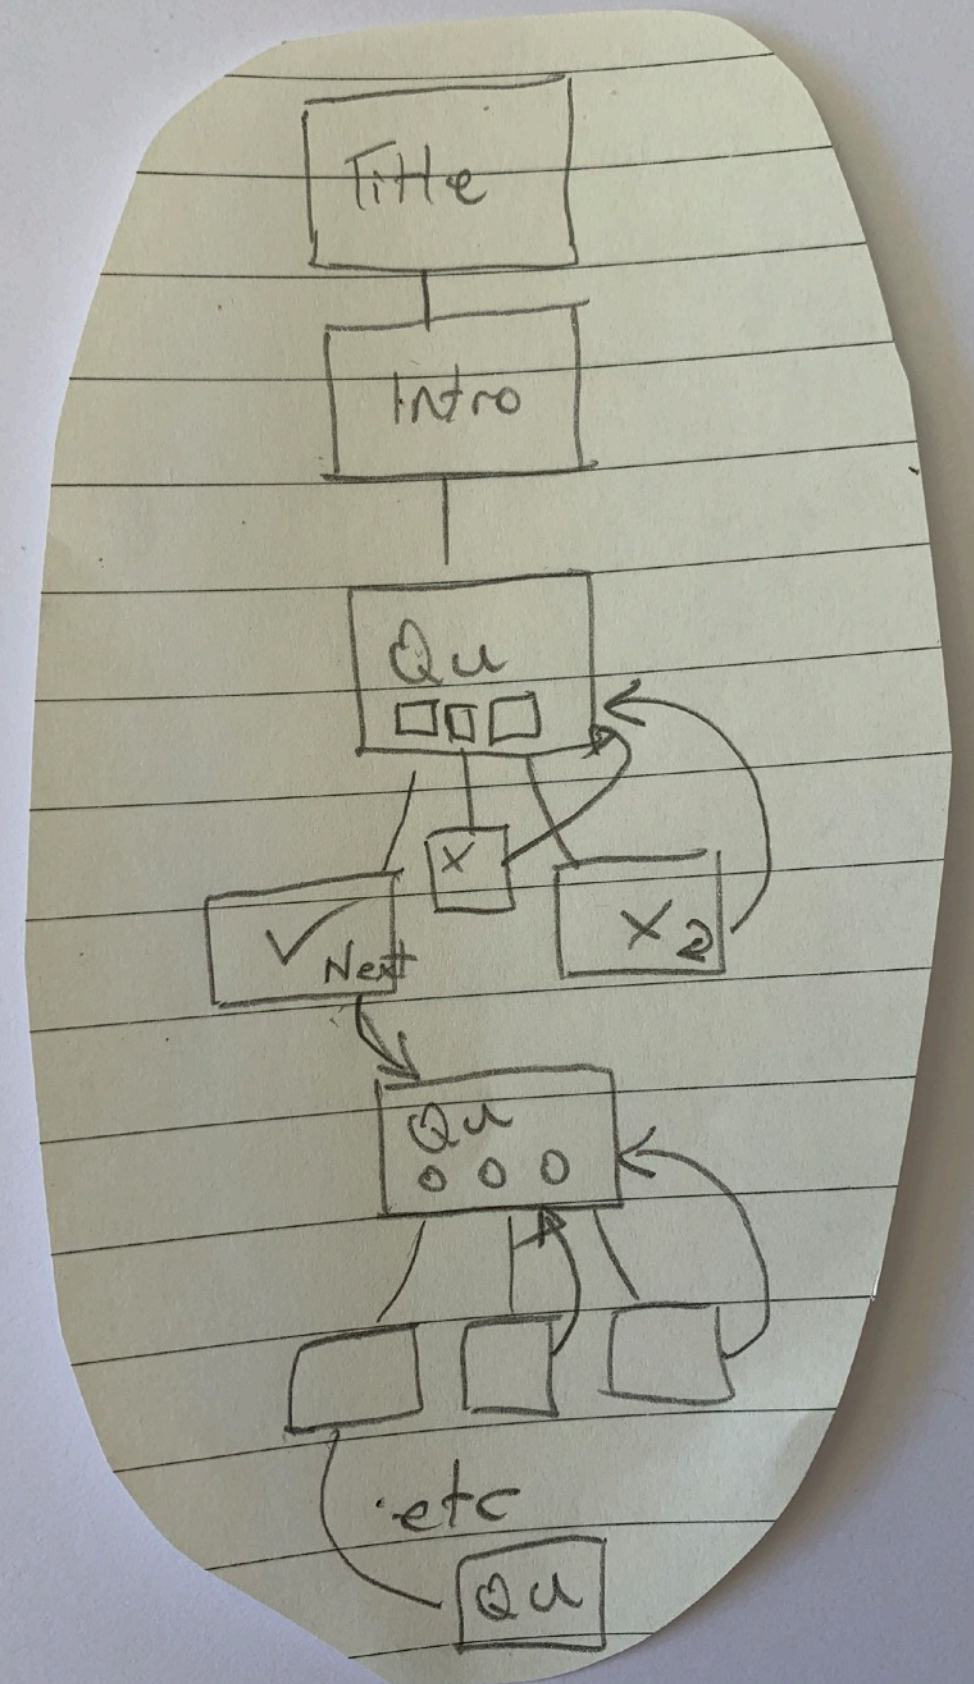 Title
Intro
Qu
X
✓ Next
X 2
Qu
etc
Qu